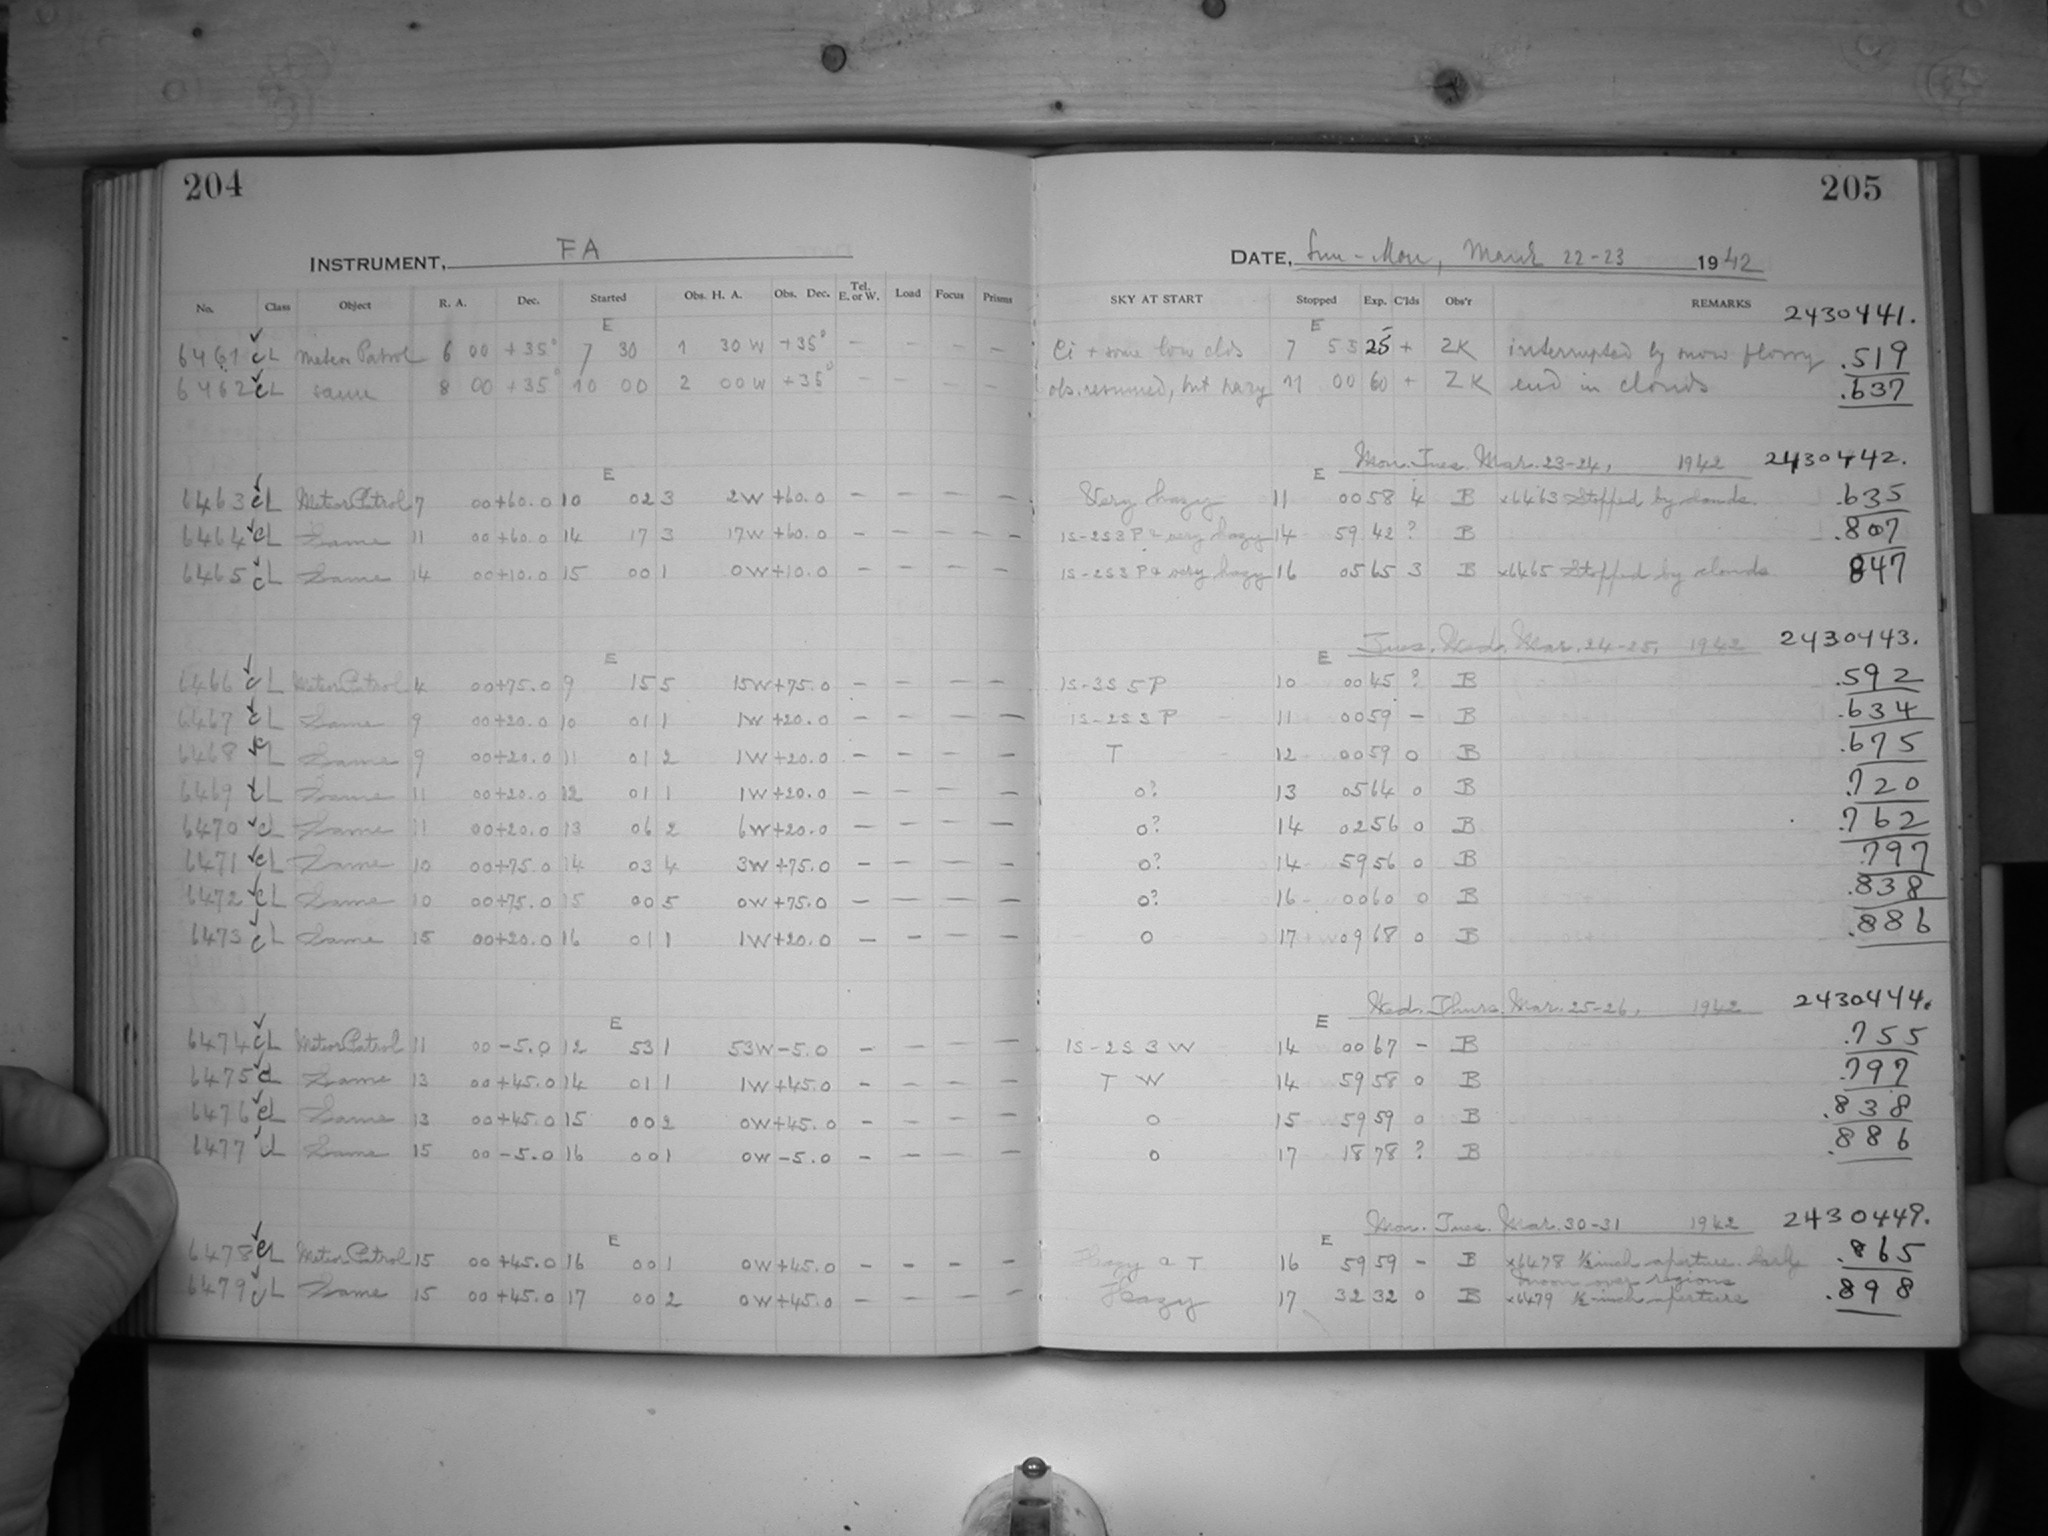 204
INSTRUMENT, FA
No. Class Object R. A. Dec. Started Obs. H. A. Obs. Dec. Tel. E. or W. Load Focus Prisms
E
6461 ✓ CL Meteor Patrol 6 00 +35° 7 30 1 30 W +35° — — — —
6462 ✓ CL same 8 00 +35° 10 00 2 00 W +35° — — — —
E
6463 ✓ CL Meteor Patrol 7 00 +60.0 10 02 3 2W +60.0 — — — —
6464 ✓ CL Same 11 00 +60.0 14 17 3 17W +60.0 — — — —
6465 ✓ CL Same 14 00 +10.0 15 00 1 0W +10.0 — — — —
E
6466 ✓ CL Meteor Patrol 4 00 +75.0 9 15 5 15W +75.0 — — — —
6467 ✓ CL Same 9 00 +20.0 10 01 1 1W +20.0 — — — —
6468 ✓ CL Same 9 00 +20.0 11 01 2 1W +20.0 — — — —
6469 ✓ CL Same 11 00 +20.0 12 01 1 1W +20.0 — — — —
6470 ✓ CL Same 11 00 +20.0 13 06 2 6W +20.0 — — — —
6471 ✓ CL Same 10 00 +75.0 14 03 4 3W +75.0 — — — —
6472 ✓ CL Same 10 00 +75.0 15 00 5 0W +75.0 — — — —
6473 ✓ CL Same 15 00 +20.0 16 01 1 1W +20.0 — — — —
E
6474 ✓ CL Meteor Patrol 11 00 -5.0 12 53 1 53W -5.0 — — — —
6475 ✓ CL Same 13 00 +45.0 14 01 1 1W +45.0 — — — —
6476 ✓ CL Same 13 00 +45.0 15 00 2 0W +45.0 — — — —
6477 ✓ CL Same 15 00 -5.0 16 00 1 0W -5.0 — — — —
E
6478 ✓ CL Meteor Patrol 15 00 +45.0 16 00 1 0W +45.0 — — — —
6479 ✓ CL Same 15 00 +45.0 17 00 2 0W +45.0 — — — —
205
DATE, Sun - Mon, March 22-23 1942
SKY AT START Stopped Exp. C'lds Obs'r REMARKS
2430441.
E
Ci + some low clds 7 55 25 + ZK interrupted by snow flurry .519
obs. resumed, but hazy 11 00 60 + ZK end in clouds .637
Mon. Tues. Mar. 23-24, 1942 2430442.
E
Very hazy 11 00 58 4 B x6463 Stopped by clouds. .635
1S-2S3P & very hazy 14 59 42 ? B .807
1S-2S3P & very hazy 16 05 65 3 B x6465 Stopped by clouds 847
Tues. Wed. Mar. 24-25, 1942 2430443.
E
1S-3S5P 10 00 45 ? B .592
1S-2S3P 11 00 59 — B .634
T 12 00 59 0 B .675
0? 13 05 64 0 B .720
0? 14 02 56 0 B .762
0? 14 59 56 0 B .797
0? 16 00 60 0 B .838
0 17 09 68 0 B .886
Wed. Thurs. Mar. 25-26, 1942 2430444.
E
1S-2S3W 14 00 67 — B .755
T W 14 59 58 0 B .797
0 15 59 59 0 B .838
0 17 18 78 ? B .886
Mon. Tues. Mar. 30-31 1942 2430449.
E
Hazy a T 16 59 59 — B x6478 ½ inch aperture. .865
moon over regions
Hazy 17 32 32 0 B x6479 ½-inch aperture .898